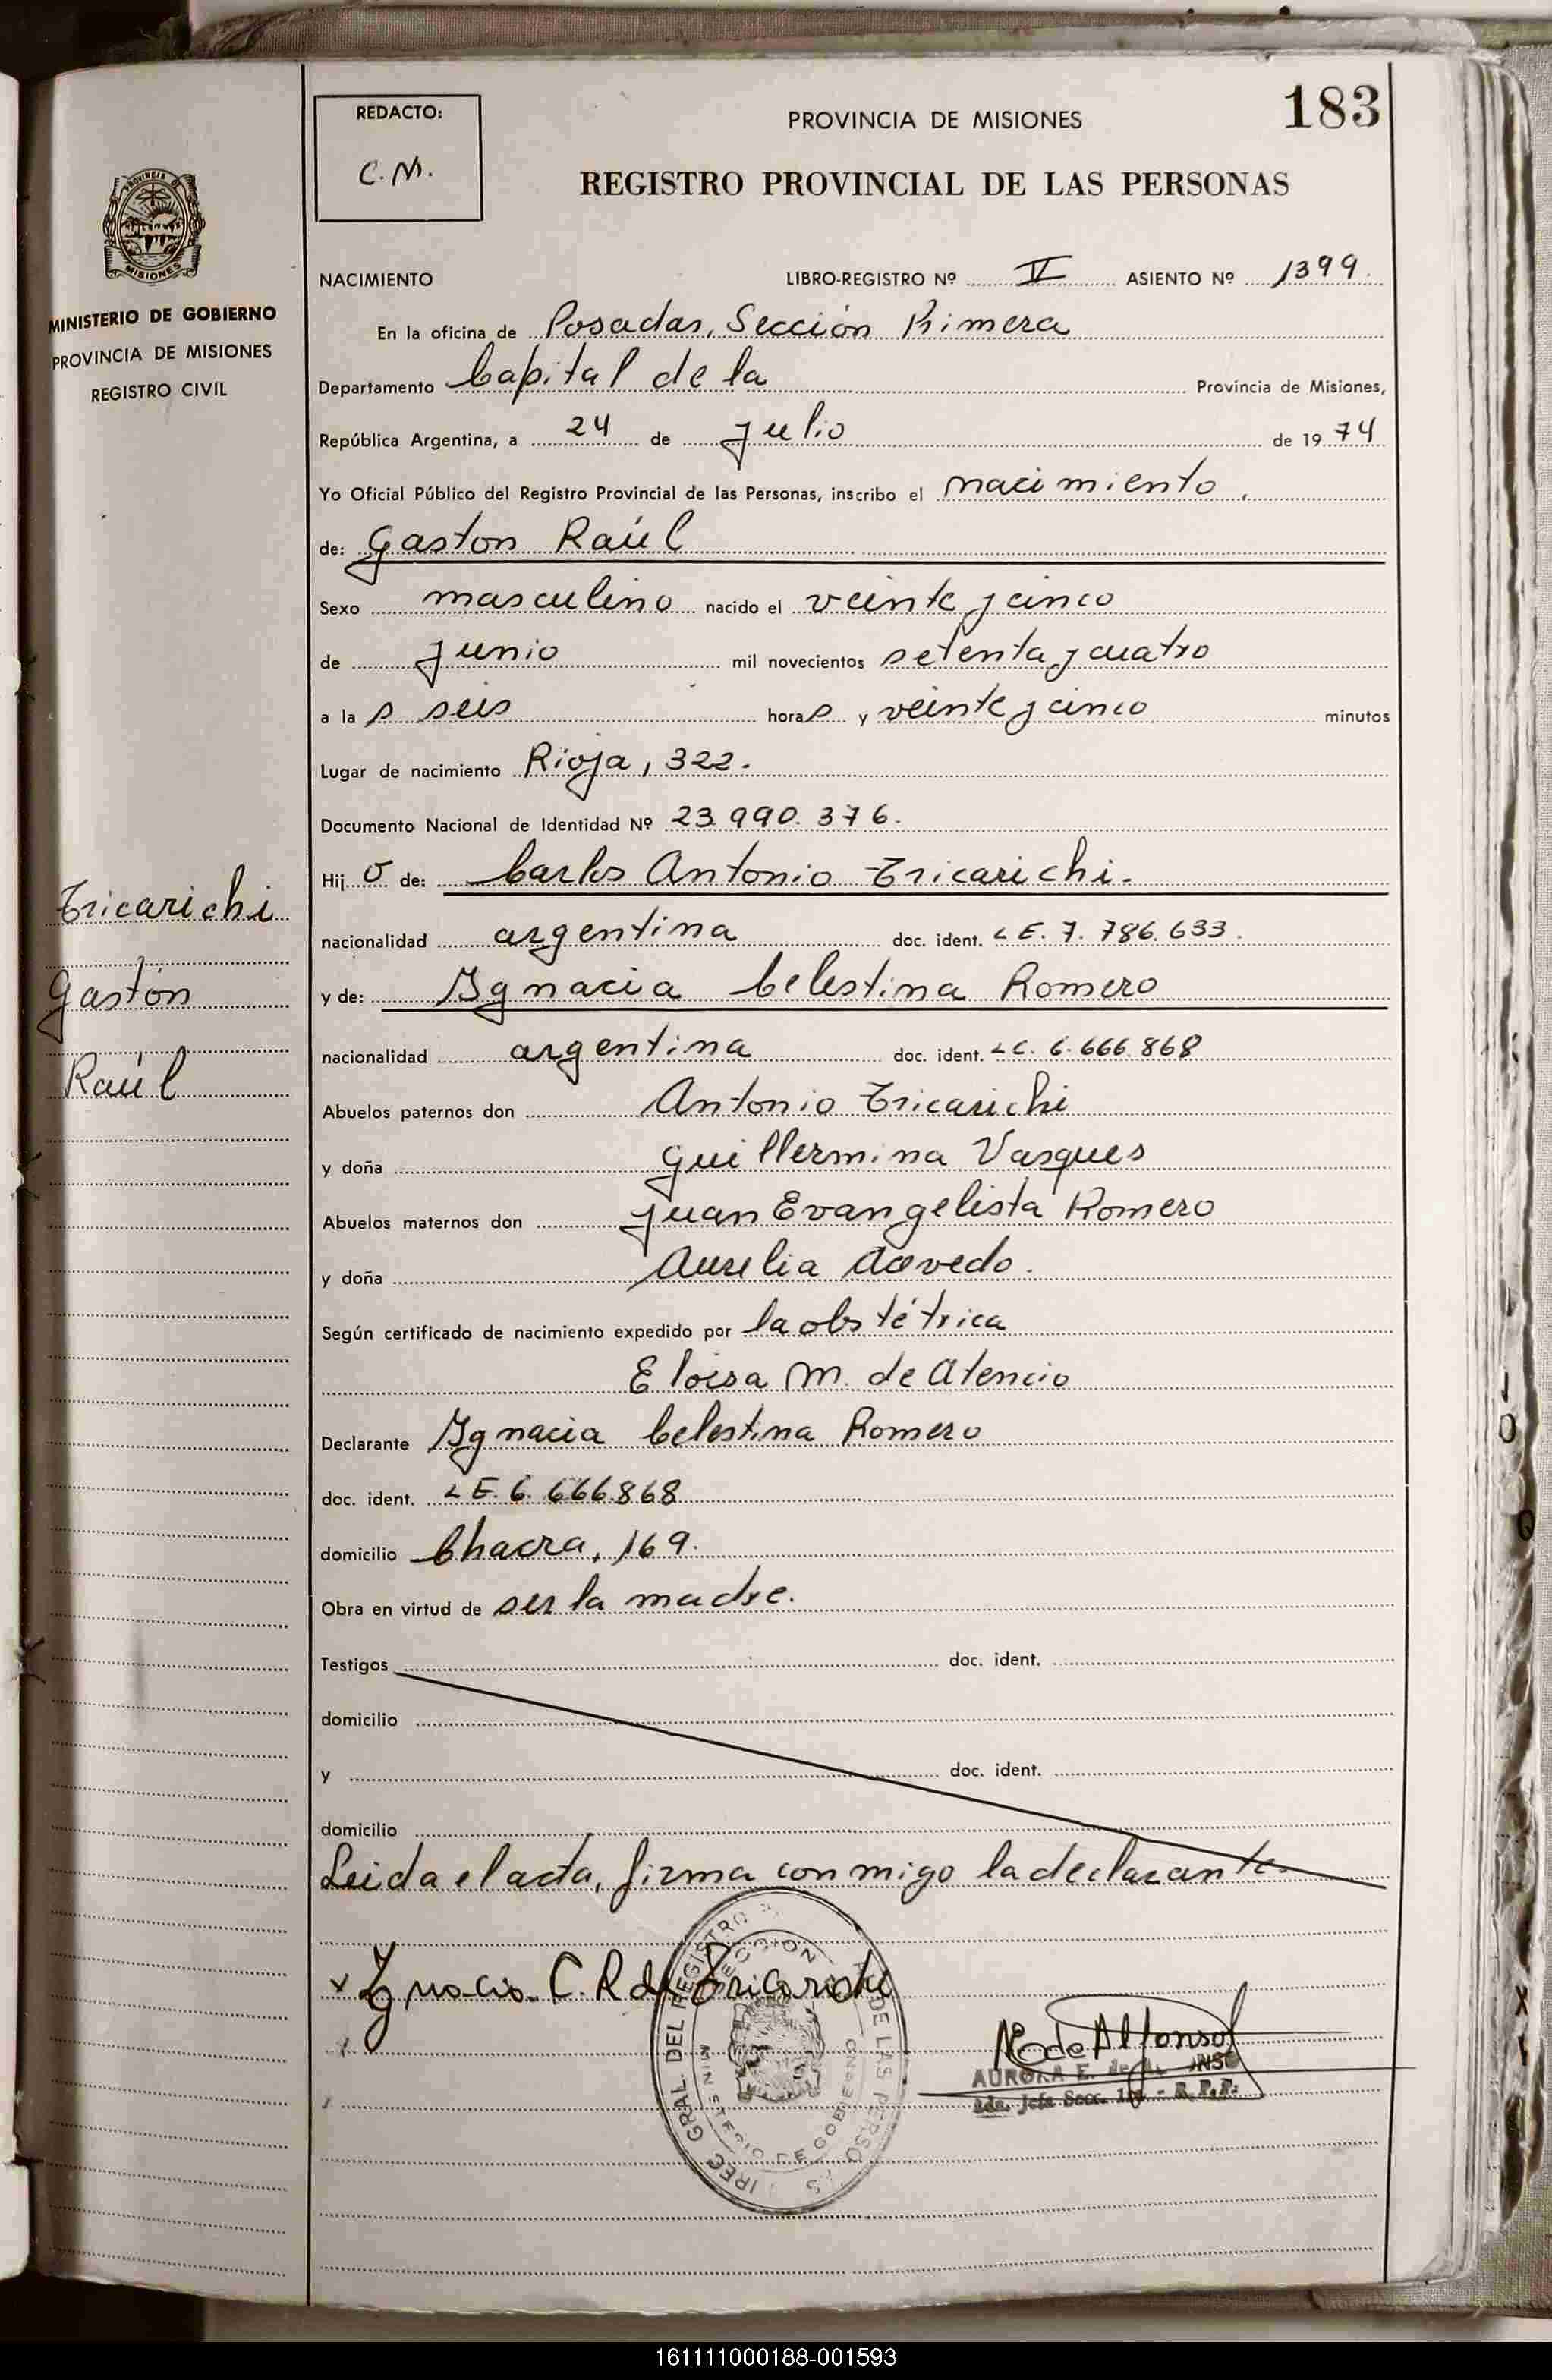 183
REDACTO:
C. M.
PROVINCIA DE MISIONES
REGISTRO PROVINCIAL DE LAS PERSONAS
PROVINCIA
MISIONES
MINISTERIO DE GOBIERNO
PROVINCIA DE MISIONES
REGISTRO CIVIL
Tricarichi
Gastón
Raúl
NACIMIENTO LIBRO-REGISTRO Nº V ASIENTO Nº 1399.
En la oficina de Posadas, Sección Primera
Departamento Capital de la Provincia de Misiones,
República Argentina, a 24 de Julio de 1974
Yo Oficial Público del Registro Provincial de las Personas, inscribo el nacimiento,
de: Gaston Raúl
Sexo masculino nacido el veinte y cinco
de Junio mil novecientos setenta y cuatro
a la s seis horas y veinte y cinco minutos
Lugar de nacimiento Rioja, 322.
Documento Nacional de Identidad Nº 23.990.376.
Hij o de: Carlos Antonio Tricarichi.
nacionalidad argentina doc. ident. LE. 7. 786.633.
y de: Ygnacia Celestina Romero
nacionalidad argentina doc. ident. LC. 6.666.868
Abuelos paternos don Antonio Tricarichi
y doña Guillermina Vasques
Abuelos maternos don Juan Evangelista Romero
y doña Aurelia Acevedo.
Según certificado de nacimiento expedido por la obstétrica
Eloisa M. de Atencio
Declarante Ygnacia Celestina Romero
doc. ident. LE. 6. 666.868
domicilio Chacra, 169.
Obra en virtud de ser la madre.
Testigos doc. ident.
domicilio
y doc. ident.
domicilio
Leida el acta, firma conmigo la declarante.
x Ygnacia C. R de Tricarichi
AEde Alfonso
AURORA E. de
Jefa Secc. 1ra. - R. P. P.
DEL REGISTRO DE LAS PERSONAS
MINISTERIO DE GOBIERNO
161111000188-001593